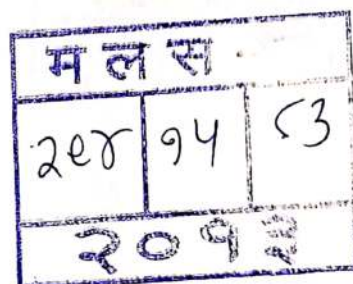 मलस
२९४ १५ ८३
२०१३